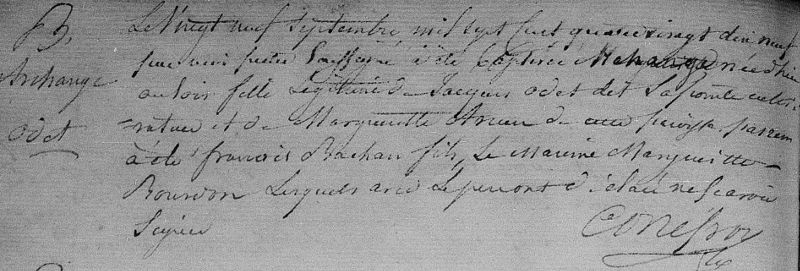 B
Archange
Odet
Le Vingt neuf septembre mil sept cent quatre vingt dix neuf
par moi pretre Soussigné à été baptisée Archange née d'hier
au soir fille Légitime de Jacques odet dit Lapointe cultiv-
-rateur et de Margueritte de cette paroisse, parrein
à été francois Bachan fils, Le Mareine Margueritte
Bourdon Lesquels avec Le pere ont déclaré ne Scavoir
Signer
Conefroy
ptre